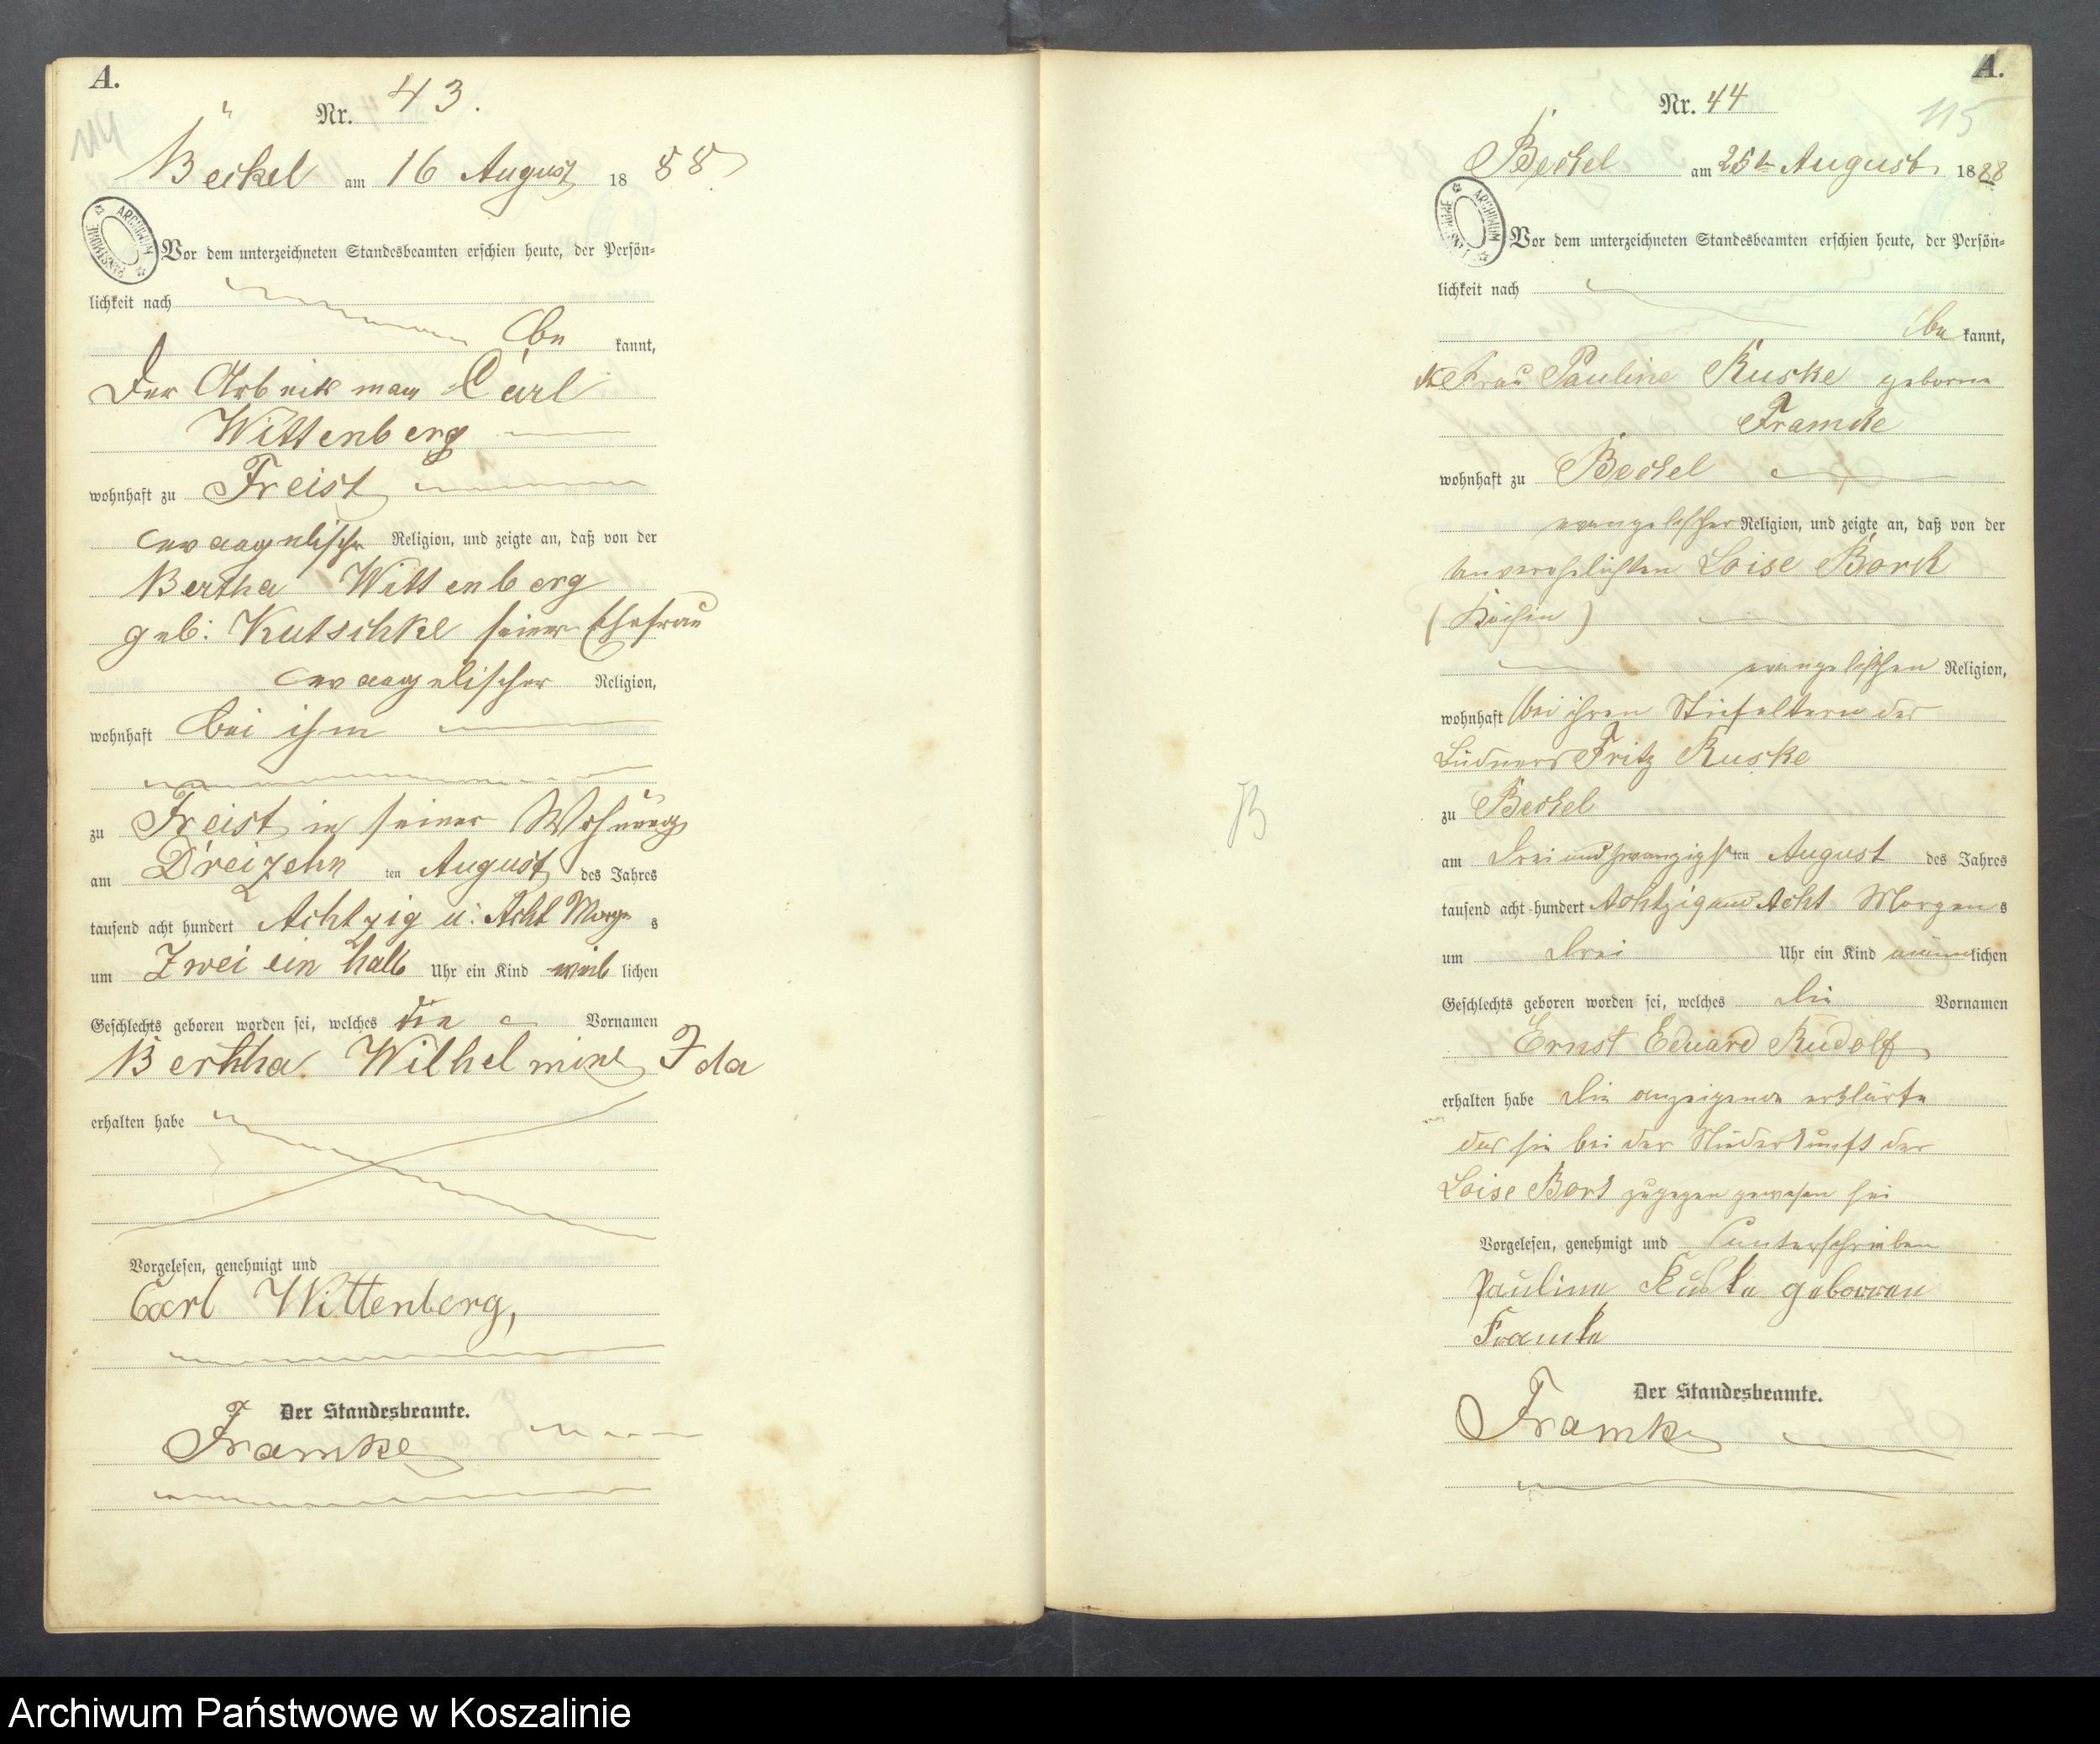 A.
114
Nr. 43.
Beckel am 16 August 1888
ARCHIWUM PAŃSTWOWE
Vor dem unterzeichneten Standesbeamten erschien heute, der Persön=
lichkeit nach
be kannt,
Der Arbeitsmann Carl
Wittenberg
wohnhaft zu Freist
evangelischer Religion, und zeigte an, daß von der
Bertha Wittenberg
geb: Kutschke seiner Ehefrau
evangelischer Religion,
wohnhaft bei ihm
zu Freist in seiner Wohnung
am Dreizehn ten August des Jahres
tausend acht hundert Achtzig u. Acht Morgen s
um Zwei ein halb Uhr ein Kind weib lichen
Geschlechts geboren worden sei, welches die Vornamen
Bertha Wilhelmine Ida
erhalten habe
Vorgelesen, genehmigt und
Carl Wittenberg,
Der Standesbeamte.
Framke
A.
115
Nr. 44
Beckel am 25ten August 1888
ARCHIWUM
Vor dem unterzeichneten Standesbeamten erschien heute, der Persön=
lichkeit nach
be kannt,
Frau Pauline Kuske geborne
Framke
wohnhaft zu Beckel
evangelischer Religion, und zeigte an, daß von der
unverehelichten Loise Bork
(Köchin)
evangelischen Religion,
wohnhaft bei ihren Stiefeltern der
Büdners Fritz Kuske
zu Beckel
am Drei und zwanzigsten August des Jahres
tausend acht hundert Achtzig und Acht Morgen s
um Drei Uhr ein Kind männlichen
Geschlechts geboren worden sei, welches die Vornamen
Ernst Eduard Rudolf
erhalten habe Die anzeigende erklärte
das sie bei der Niederkunft der
Loise Bork zugegen gewesen sei
Vorgelesen, genehmigt und unterschrieben
Pauline Kuske geborren
Framke
Der Standesbeamte.
Framke
Archiwum Państwowe w Koszalinie